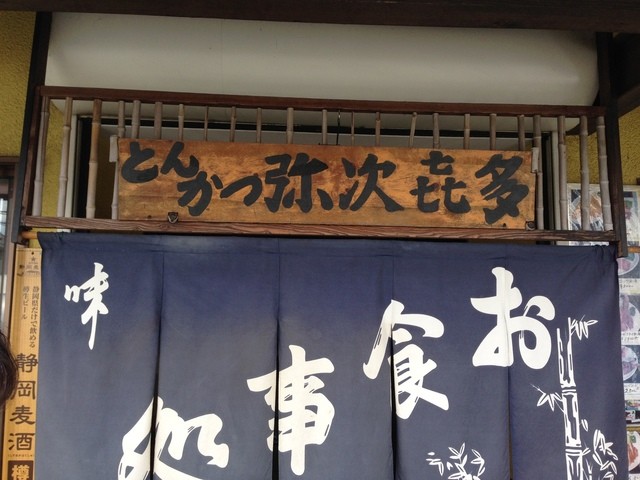 とんかつ弥次㐂多
お食事処
味
静岡県だけで飲める
樽生ビール
静岡麦酒
樽